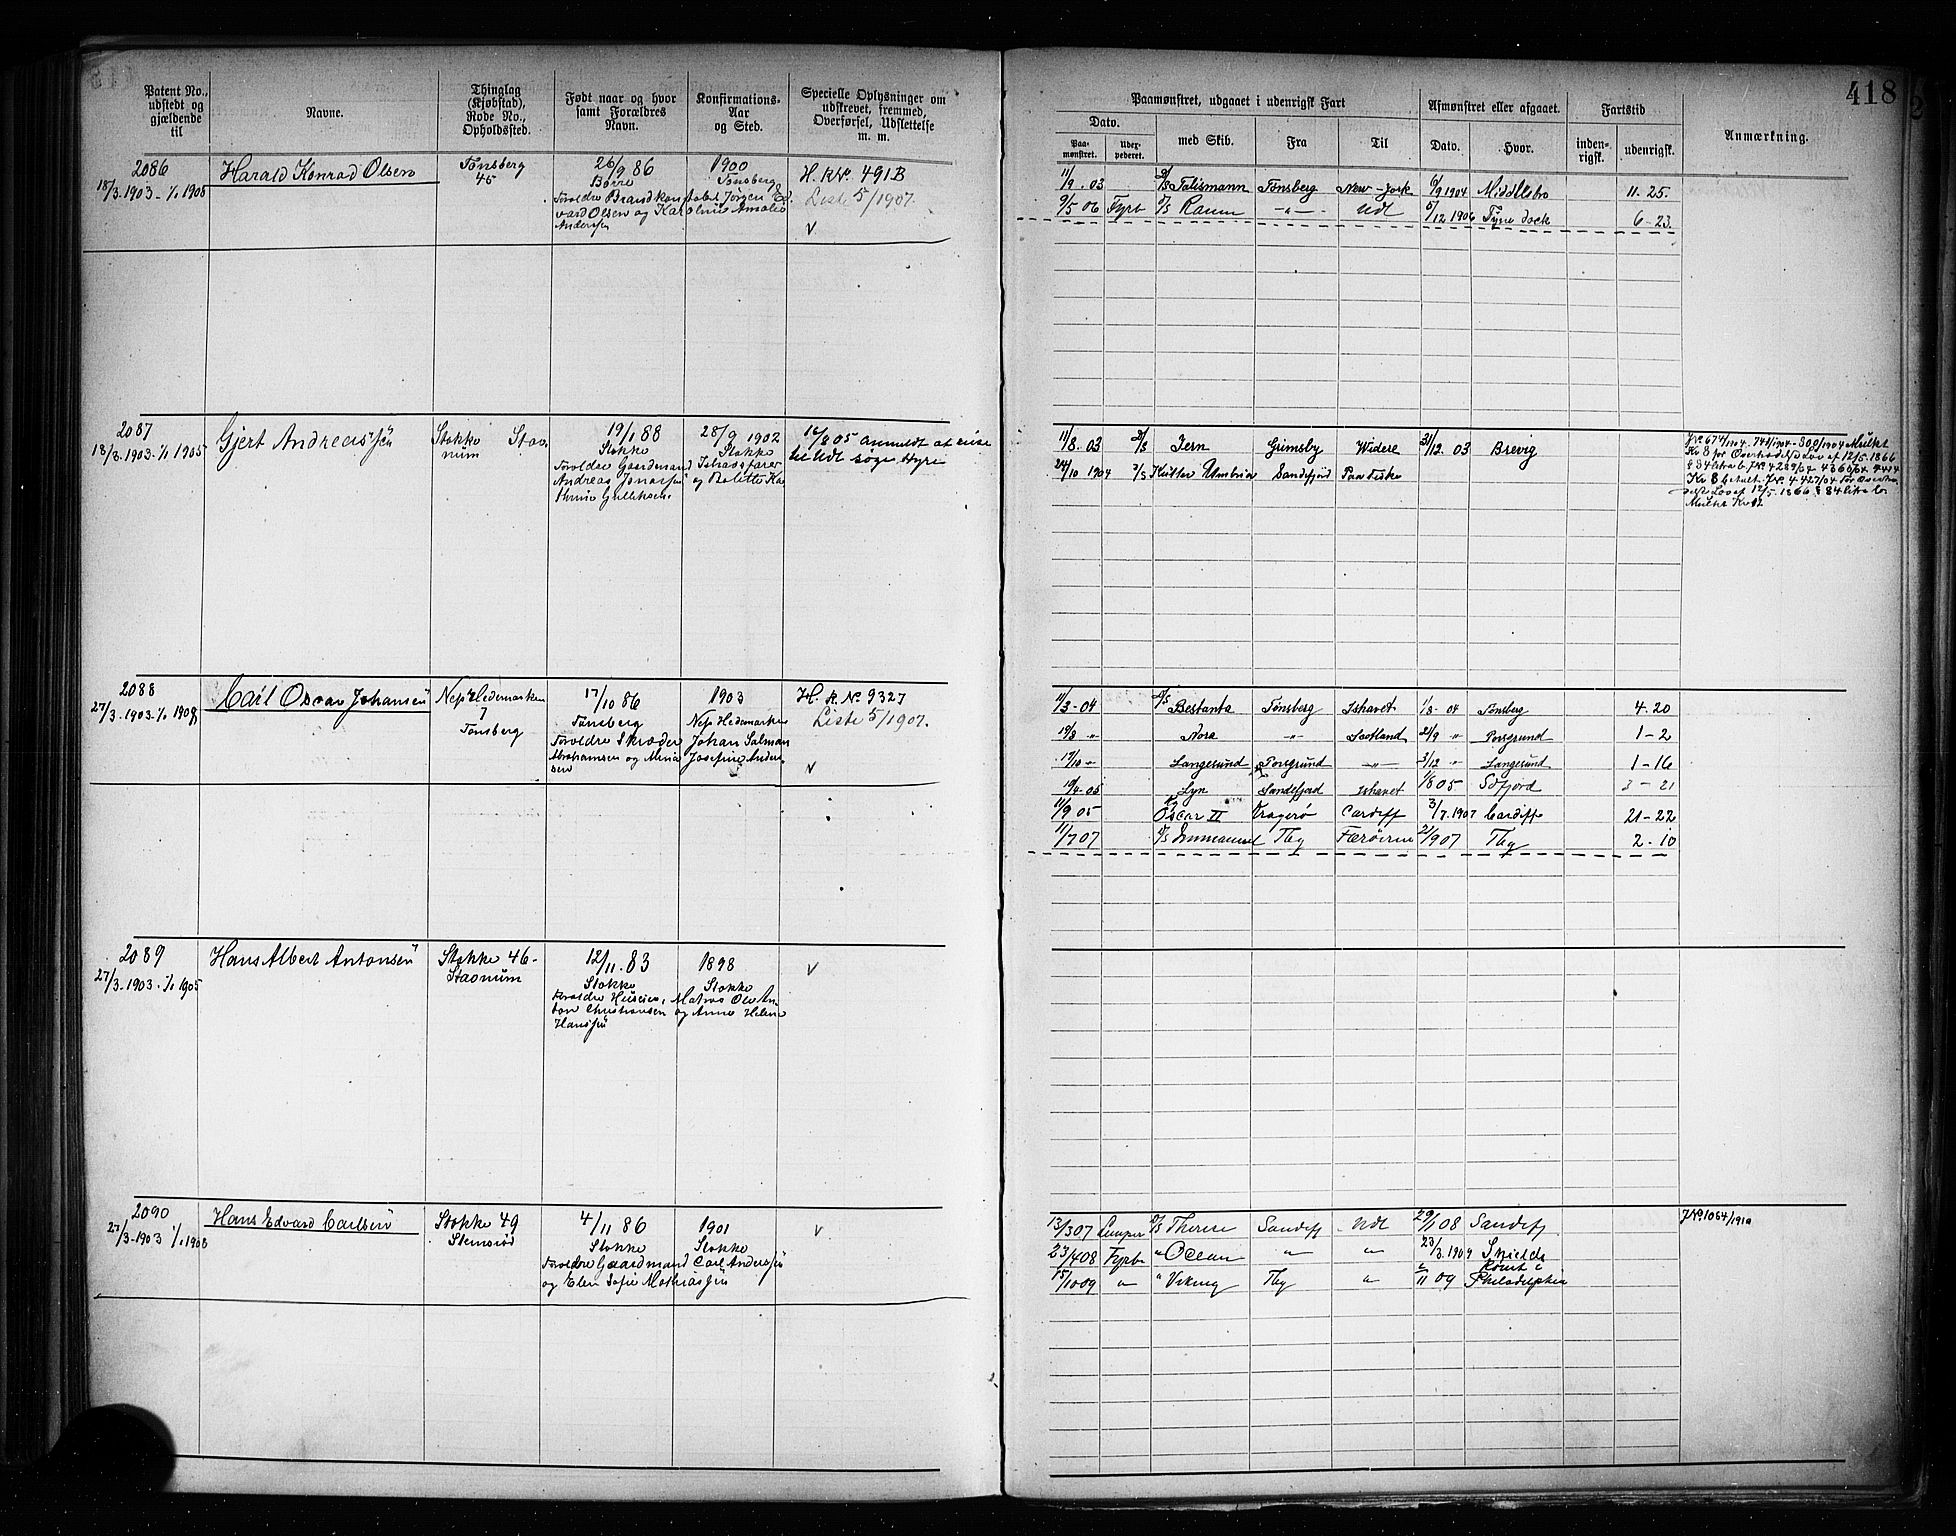 418
Patent No., udstedt og gjældende til
Navne.
Thinglag (Kjøbstad), Rode No., Opholdssted.
Født naar og hvor samt Forældres Navn.
Konfirmations-Aar og Sted.
Specielle Oplysninger om udskrevet, fremmed, Overførsel, Udslettelse m. m.
Paamønstret, udgaaet i udenrigsk Fart
Afmønstret eller afgaaet.
Fartstid
Anmærkning.
Dato.
Paa-mønstret.
Uder-pederet.
med Skib.
Fra
Til
Dato.
Hvor.
inden-rigsk.
udenrigsk.
2086
18/3.1903-1/1 1908
Harald Konrad Olsen
Tønsberg
45
26/9 86
Borre
Forældre Brandkonstabel Jørgen Ed-
vard Olsen og Karoline Amalie
Andersen
1900
Tønsberg
H. R No. 491 B
Liste 5/1907.
V
11/9.03 D/S Talismann Tønsberg New-York 6/9 1904 Middlesbro 11-25.
9/5 06 Fyrb D/S Raum -„- Udl 5/12 1906 Tyne dock 6-23.
2087
18/3.1903-1/1 1905
Gjert Andreassen
Stokke
19/1 88
Stokke
Forældre Gaardmand Istraadfører
Andreas Jonassen og Bolette Ka
thrine Gulliksen
28/9 1902
Stokke
16/8 05 anmeldt at reise
til Udl søge Hyre
11/8.03 D/S Jern Grimsby Widere 31/12 03 Brevig
24/10 1904 Kutter Umbria Sandefjord Paa Fiske
Kr 8 for Overtrædelse Lov af 12/5.1866
Kr 8 betalt
Lov af 12/5.1866 § 84 litra b.
Mulkt Kr 12
2088
27/3.1903.1/1 1908
Carl Oscar Johansen
Nes Hedemarken
7
Tønsberg
17/10 86
Tønsberg
Forældre Skræder Johan Salman
Abrahamsen og Mina Josefine Anders
sen
1903
Nes Hedemarken
H. R No. 9327
Liste 5/1907.
V
11/3-04 D/S Bestanta Tønsberg Ishavet 1/8-04 Tønsberg 4-20
19/8 „ Nora -„- Scotland 21/9 „ Porsgrund 1-2
17/10 „ Langesund Porsgrund -„- 3/12 „ Langesund 1-16
10/4-05 Lyn Sandefjord Ishavet 1/8 05 Söfjord 3-21
11/9 05 Oscar II Kragerø Cardiff 3/7.1907 Cardiff 21-22
11/7 07 D/S Immanuel Tbg Færöerne 21/9 07 Tbg 2-10
2089
27/3-1903.1/1 1905
Hans Albert Antonsen
Stokke 46-
Stasnum
12/11.83
Stokke
Forældre Huseier, Matros Ole An-
ton Christiansen og Anne Helene
Hanssen
1898
Stokke
V
2090
27/3-1903 1/1 1908
Hans Edvard Carlsen
Stokke 49
Stemsrød
4/11 86
Stokke
Forældre Gaardmand Carl Anderssen
og Elen Sofie Mathiassen
1901
Stokke
V
13/3 07 Lemper D/S Therese Sandefj Udl 29/1 08 Sandefj
23/4 08 Fyrb „ Ocean „ „ 23/3.1909 Shields
15/10 09 „ „ Viking Tbg „ 11 09 Rømt i
Philadelphia
J No 1064/1910